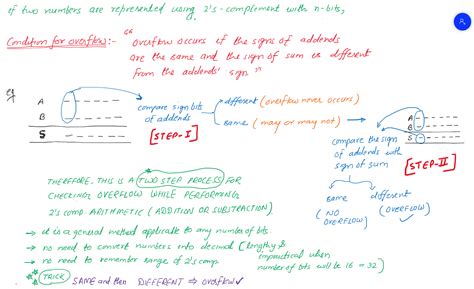 if two numbers are represented using 2's-complement with n-bits,
Condition for overflow:- "overflow occurs if the signs of addends
are the same and the sign of sum is different
from the addends' sign"
eg
A
B
S
compare sign bits
of addends
[STEP-I]
different (overflow never occurs)
same (may or may not)
compare the sign
of addends with
sign of sum
A
B
S
[STEP-II]
same
(NO
OVERFLOW)
different
(OVERFLOW)
THEREFORE, THIS IS A TWO STEP PROCESS FOR
CHECKING OVERFLOW WHILE PERFORMING
2's comp ARITHMETIC (ADDITION OR SUBTRACTION)
→ it is a general method applicable to any number of bits
→ no need to convert numbers into decimal (lengthy &
impractical when
number of bits will be 16 = 32)
→ no need to remember range of 2's comp.
TRICK SAME and then DIFFERENT ⇒ overflow ✓